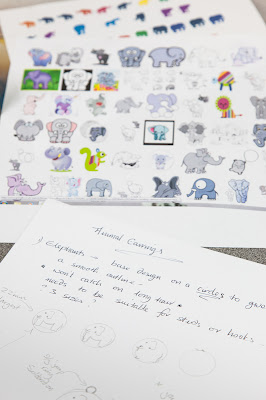 Animal Earrings
1) Elephants - base design on a circle to give
a smooth outline.
* won't catch on long hair *
needs to be suitable for studs or hooks.